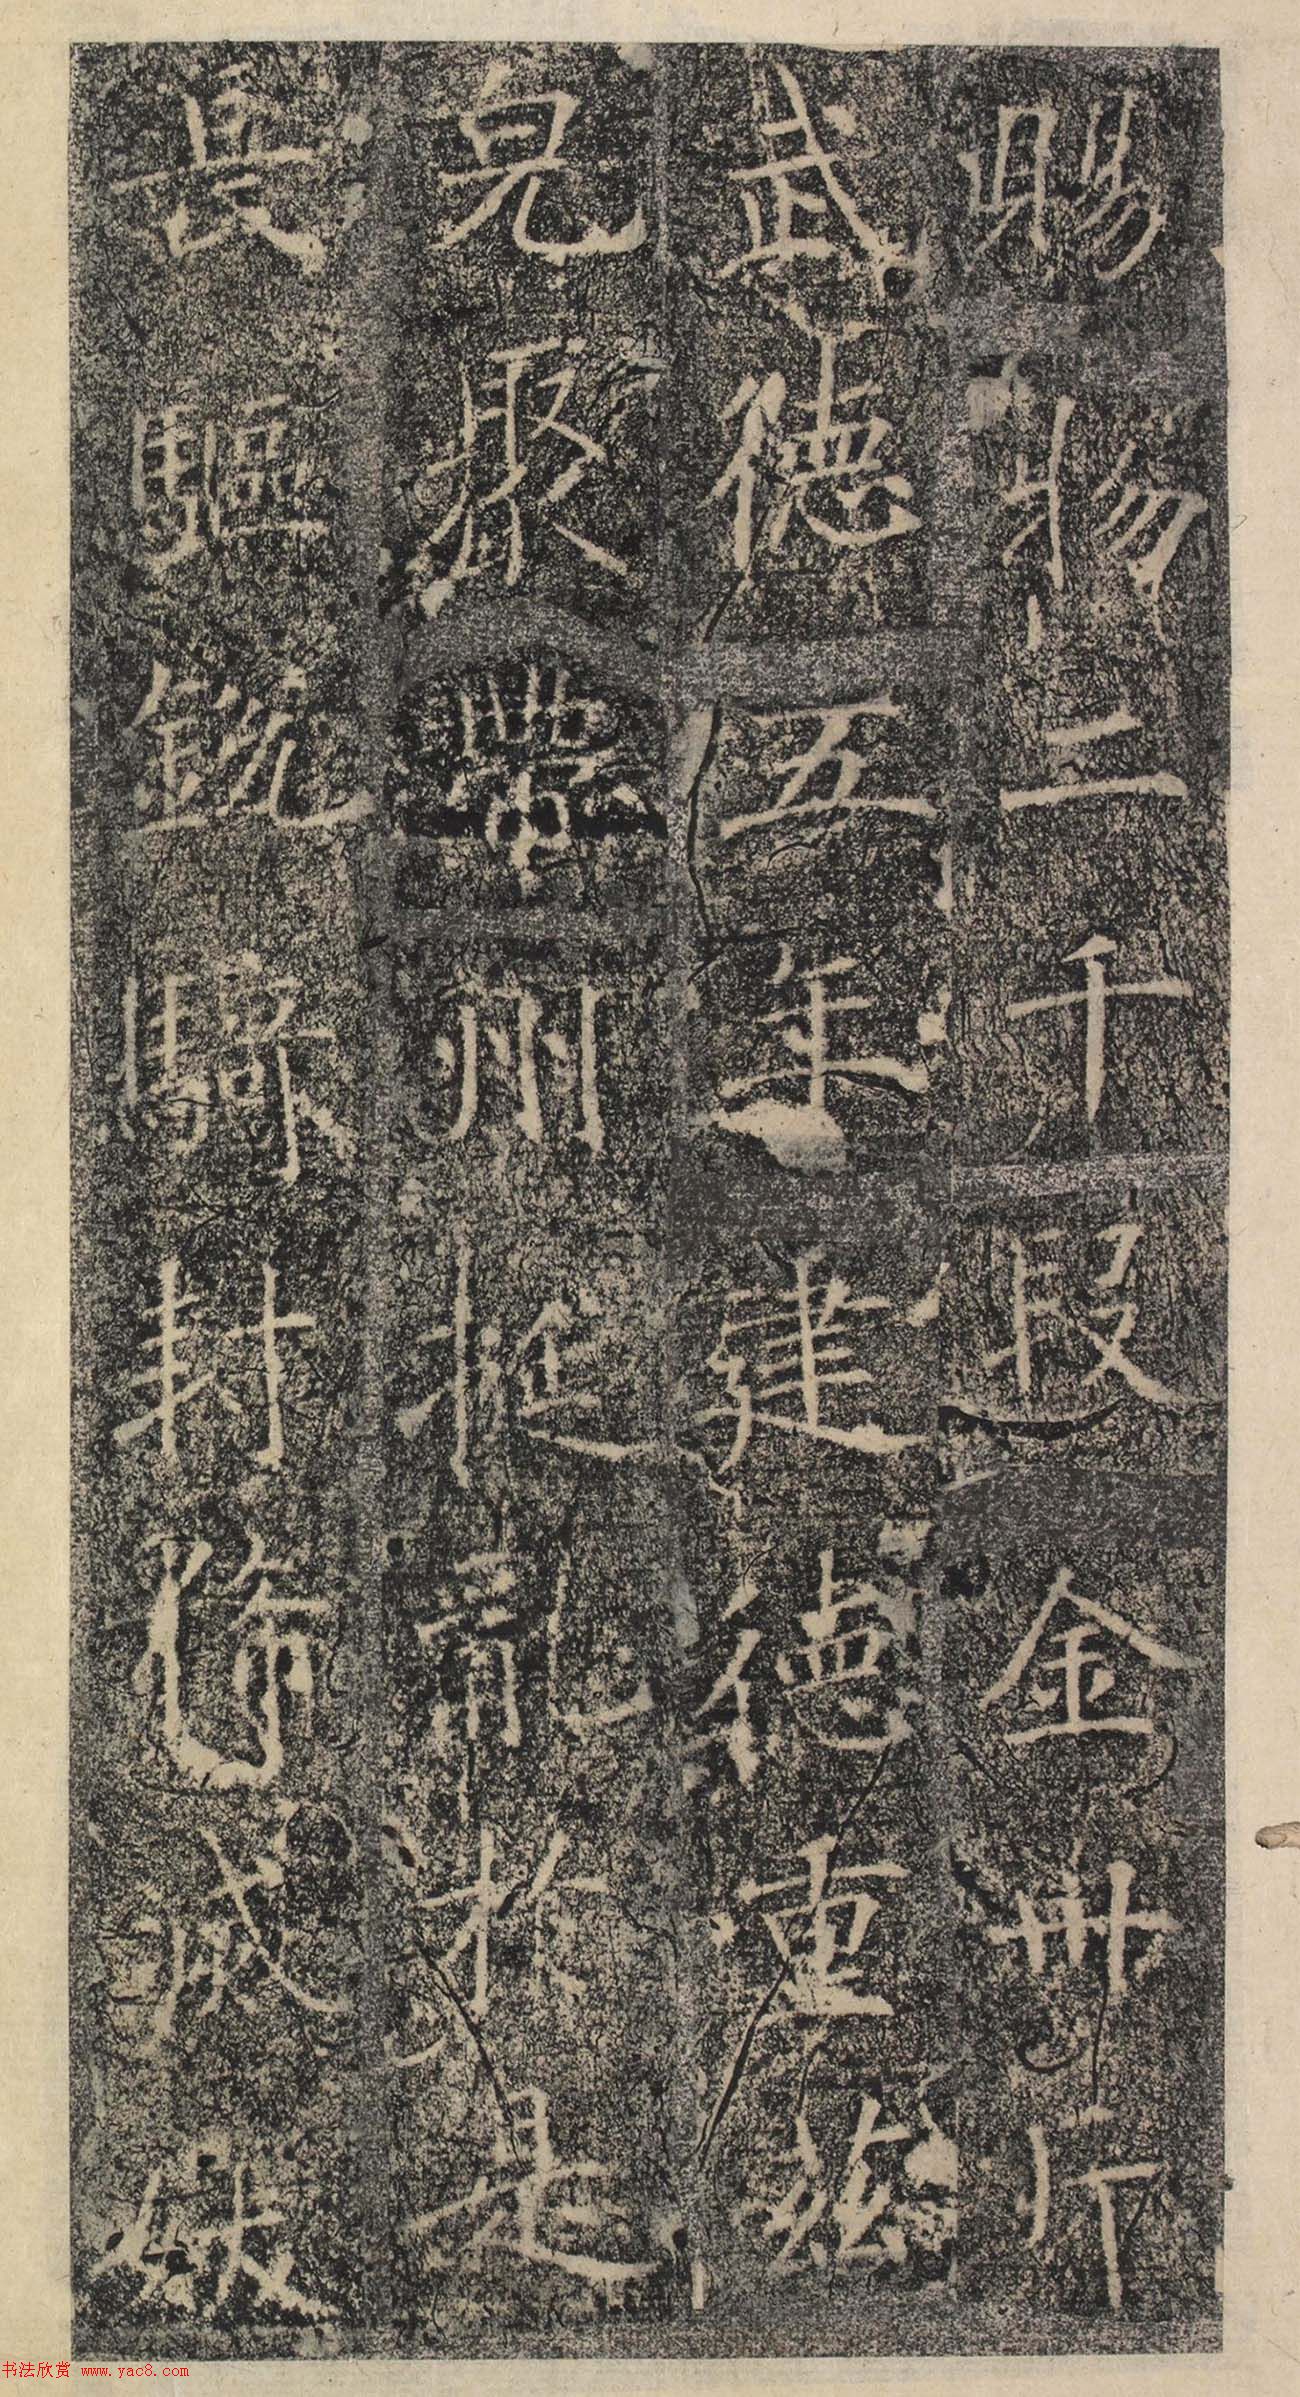 賜物二千段金卌斤
武德五年建德重茲
兇聚豐州挻亂於是
長驅銳騎封豨咸
书法欣赏 www.yac8.com